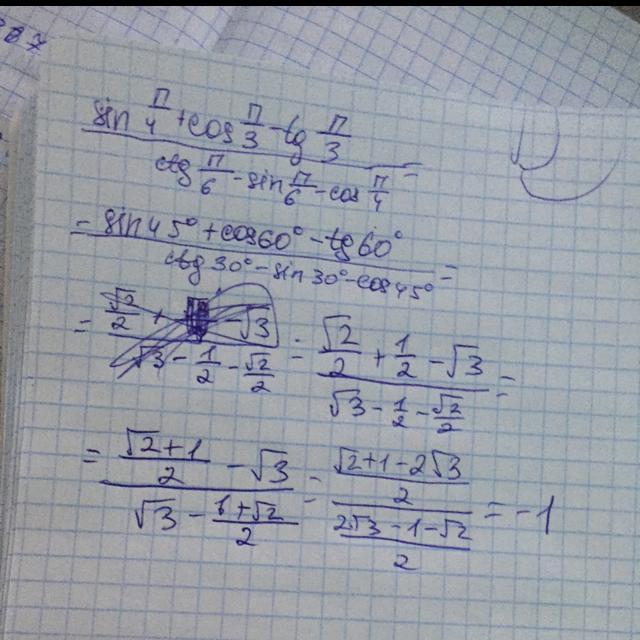 sin π/4 + cos π/3 - tg π/3
ctg π/6 - sin π/6 - cos π/4 =
= sin 45° + cos 60° - tg 60°
ctg 30° - sin 30° - cos 45° =
= √2/2 + - √3
√3 - 1/2 - √2/2 =
√2/2 + 1/2 - √3
√3 - 1/2 - √2/2 =
= (√2+1)/2 - √3
√3 - (1+√2)/2 =
(√2+1-2√3)/2
(2√3-1-√2)/2 = -1